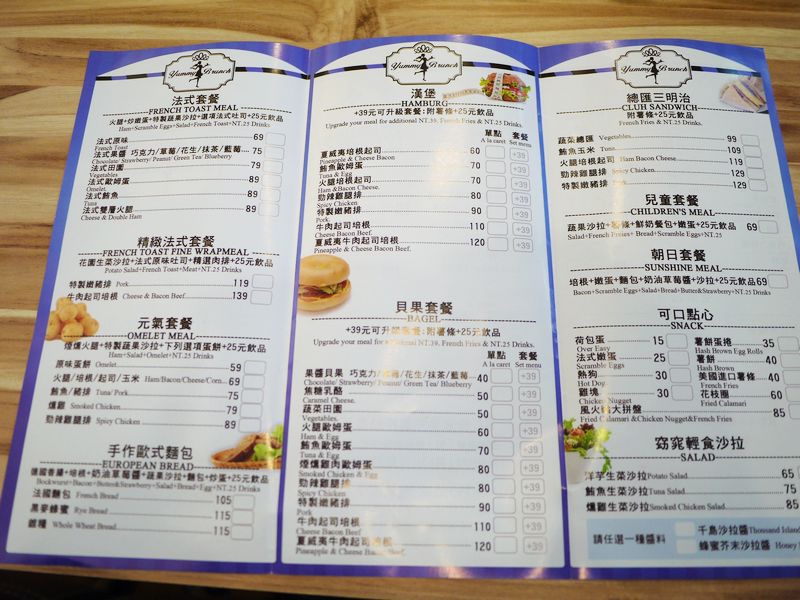 Yummy Brunch
法式套餐
FRENCH TOAST MEAL
火腿+炒嫩蛋+特製蔬果沙拉+選項法式吐司+25元飲品
Ham+Scramble Eggs+Salad+French Toast+NT.25 Drinks
法式原味 69
French Toast
法式果醬 巧克力/草莓/花生/抹茶/藍莓 75
Chocolate/ Strawberry/ Peanut/ Green Tea/ Blueberry
法式田園 79
Vegetables
法式歐姆蛋 89
Omelet
法式鮪魚 89
Tuna
法式雙層火腿 89
Cheese & Double Ham
精緻法式套餐
FRENCH TOAST FINE WRAPMEAL
花園生菜沙拉+法式原味吐司+精選肉排+25元飲品
Potato Salad+French Toast+Meat+NT.25 Drinks
特製嫩豬排 Pork 119
牛肉起司培根 Cheese & Bacon Beef 139
元氣套餐
OMELET MEAL
煙燻火腿+特製蔬果沙拉+下列選項蛋餅+25元飲品
Ham+Salad+Omelet+NT.25 Drinks
原味蛋餅 Omelet 59
火腿/培根/起司/玉米 Ham/Bacon/Cheese/Corn 69
鮪魚/豬排 Tuna/Pork 75
燻雞 Smoked Chicken 79
勁辣雞腿排 Spicy Chicken 89
手作歐式麵包
EUROPEAN BREAD
德國香腸+培根+奶油草莓醬+蔬果沙拉+麵包+炒蛋+25元飲品
Bockwurst+Bacon+Butter&Strawberry+Salad+Bread+Egg+NT.25 Drinks
法國麵包 French Bread 105
黑麥蜂蜜 Rye Bread 115
雜糧 Whole Wheat Bread 115
Yummy Brunch
漢堡
HAMBURG
+39元可升級套餐:附薯條+25元飲品
Upgrade your meal for additional NT.39, French Fries & NT.25 Drinks
單點 套餐
A la caret Set menu
夏威夷培根起司 60 +39
Pineapple & Cheese Bacon
鮪魚歐姆蛋 70 +39
Tuna & Egg
火腿培根起司 70 +39
Ham &Bacon Cheese
勁辣雞腿排 80 +39
Spicy Chicken
特製嫩豬排 90 +39
Pork
牛肉起司培根 110 +39
Cheese Bacon Beef
夏威夷牛肉起司培根 120 +39
Pineapple & Cheese Bacon Beef
貝果套餐
BAGEL
+39元可升級套餐:附薯條+25元飲品
Upgrade your meal for additional NT.39, French Fries & NT.25 Drinks
單點 套餐
A la caret Set menu
果醬貝果 巧克力/草莓/花生/抹茶/藍莓 40 +39
Chocolate/ Strawberry/ Peanut/ Green Tea/ Blueberry
焦糖乳酪 50 +39
Caramel Cheese
蔬菜田園 50 +39
Vegetables
火腿歐姆蛋 60 +39
Ham & Egg
鮪魚歐姆蛋 70 +39
Tuna & Egg
煙燻雞肉歐姆蛋 80 +39
Smoked Chicken & Egg
勁辣雞腿排 80 +39
Spicy Chicken
特製嫩豬排 90 +39
Pork
牛肉起司培根 110 +39
Cheese Bacon Beef
夏威夷牛肉起司培根 120 +39
Pineapple & Cheese Bacon Beef
Yummy Brunch
總匯三明治
CLUH SANDWICH
附薯條+25元飲品
French Fries & NT.25 Drinks
蔬菜總匯 Vegetables 99
鮪魚玉米 Tuna 109
火腿培根起司 Ham Bacon Cheese 119
勁辣雞腿排 Spicy Chicken 129
特製嫩豬排 Pork 129
兒童套餐
CHILDREN'S MEAL
蔬果沙拉+薯條+鮮奶餐包+嫩蛋+25元飲品 69
Salad+French Fries+Bread+Scramble Eggs+NT.25
朝日套餐
SUNSHINE MEAL
培根+嫩蛋+麵包+奶油草莓醬+沙拉+25元飲品 69
Bacon+Scramble Eggs+Salad+Bread+Butter&Strawberry+NT.25 Drinks
可口點心
SNACK
荷包蛋 15 薯餅蛋捲 35
Over Easy Hash Brown Egg Rolls
法式嫩蛋 25 薯餅 40
Scramble Eggs Hash Brown
熱狗 30 美國進口薯條 40
Hot Dog French Fries
雞塊 30 花枝圈 60
Chicken Nugget Fried Calamari
風火輪大拼盤 85
Fried Calamari&Chicken Nugget&French Fries
窈窕輕食沙拉
SALAD
洋芋生菜沙拉 Potato Salad 65
鮪魚生菜沙拉 Tuna Salad 75
燻雞生菜沙拉 Smoked Chicken Salad 85
請任選一種醬料 千島沙拉醬 Thousand Island
蜂蜜芥末沙拉醬 Honey